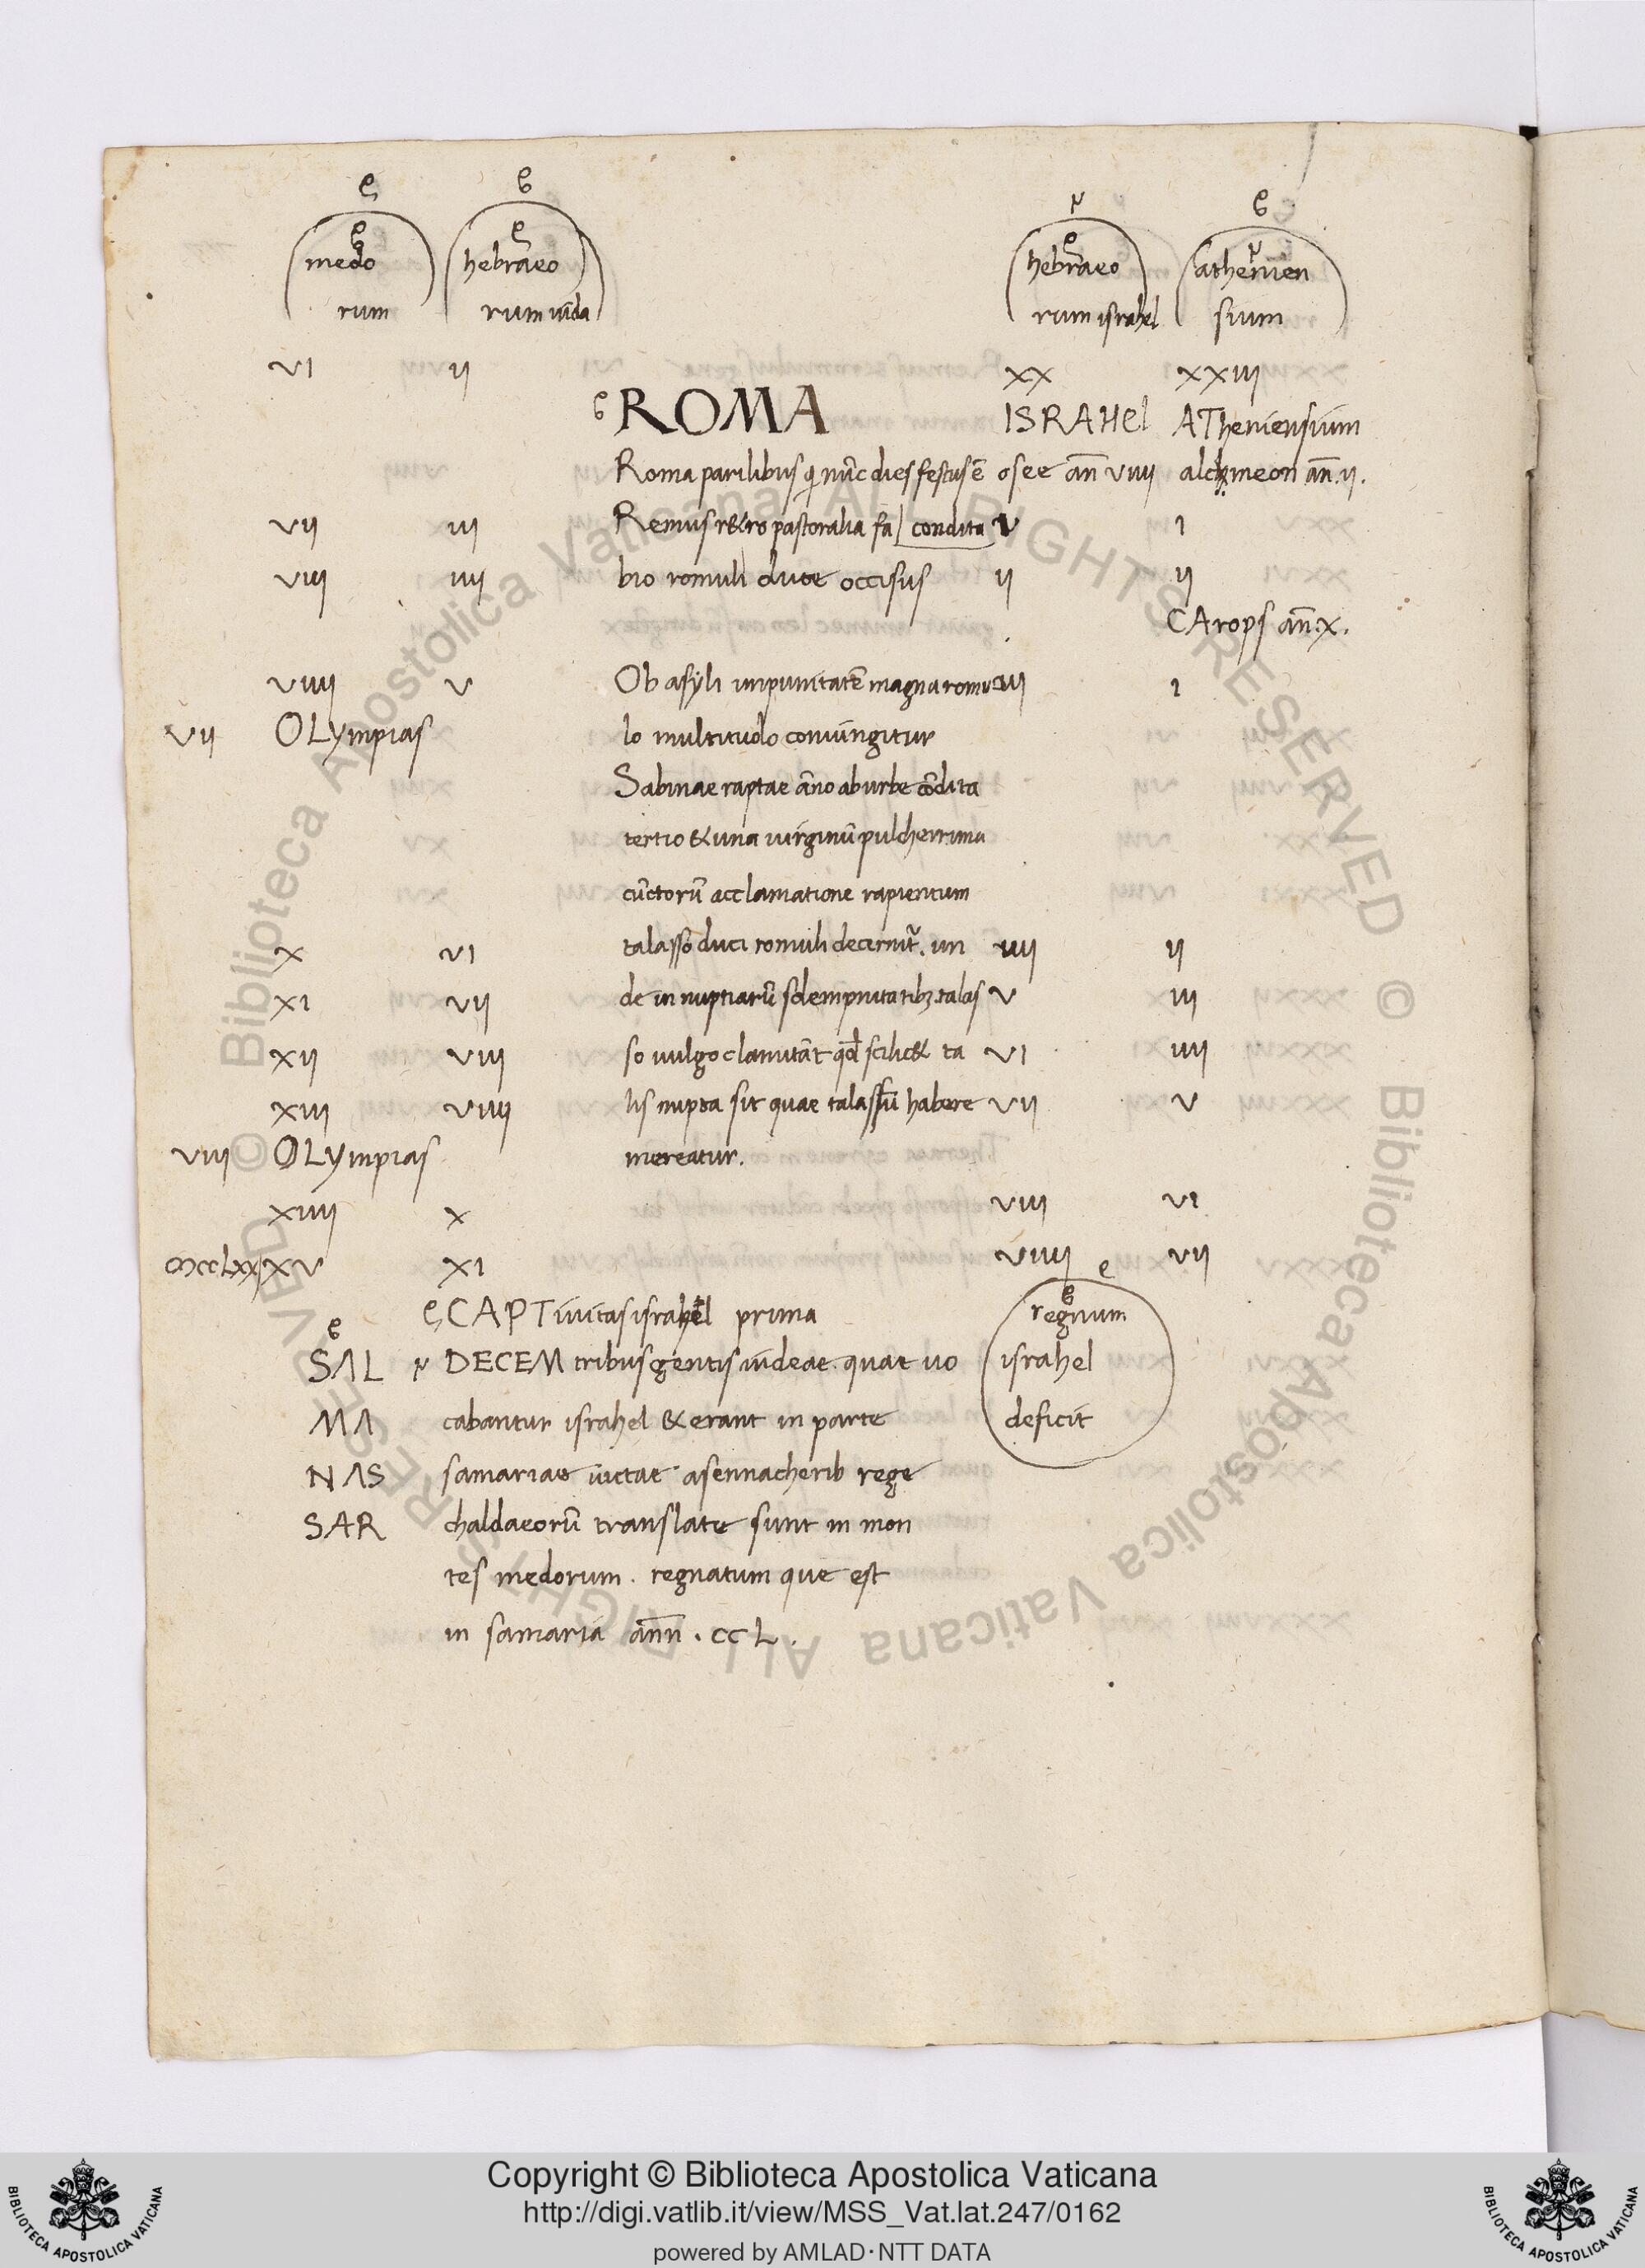 medo hebraeo hebraeo athenien
rum rum iuda rum israhel sium
VI II XX XXIII
ROMA ISRAHel ATheniensium
Roma parilibus q nūc dies festus ē osee an̄ VIIII alchmeon an̄.II.
VII III Remus r&ro pastoralia fa condita I I
VIII IIII bio romuli duce occisus II II
CArops an̄.X.
VIIII V Ob asyli impunitatē magna romu III I
VII OLympias lo multitudo coniungitur
Sabinae raptae āno ab urbe cōdita
tertio & una uirginū pulcherrima
cūctorū acclamatione rapientum
X VI talasso duci romuli decernit̄. un IIII II
XI VII de in nuptiarū solempnitatib; talas V III
XII VIII so uulgo clamitāt qđ scilic& ta VI IIII
XIII VIIII lis nupta sit quae talassū habere VII V
VIII OLympias mereatur.
XIIII X VIII VI
MCCLXX XV XI VIIII VII
CAPTiuitas israhel prima regnum
SAL DECEM tribus gentis iudeae. quae uo israhel
MA cabantur israhel & erant in parte deficit
NAS samariae uictae a sennacherib rege
SAR chaldaeorū translate sunt in mon
tes medorum. regnatum que est
in samaria an̄n. CCL.
© Biblioteca Apostolica Vaticana ALL RIGHTS RESERVED
© Biblioteca Apostolica Vaticana ALL RIGHTS RESERVED
Copyright © Biblioteca Apostolica Vaticana
http://digi.vatlib.it/view/MSS_Vat.lat.247/0162
powered by AMLAD·NTT DATA
BIBLIOTECA APOSTOLICA VATICANA
BIBLIOTECA APOSTOLICA VATICANA